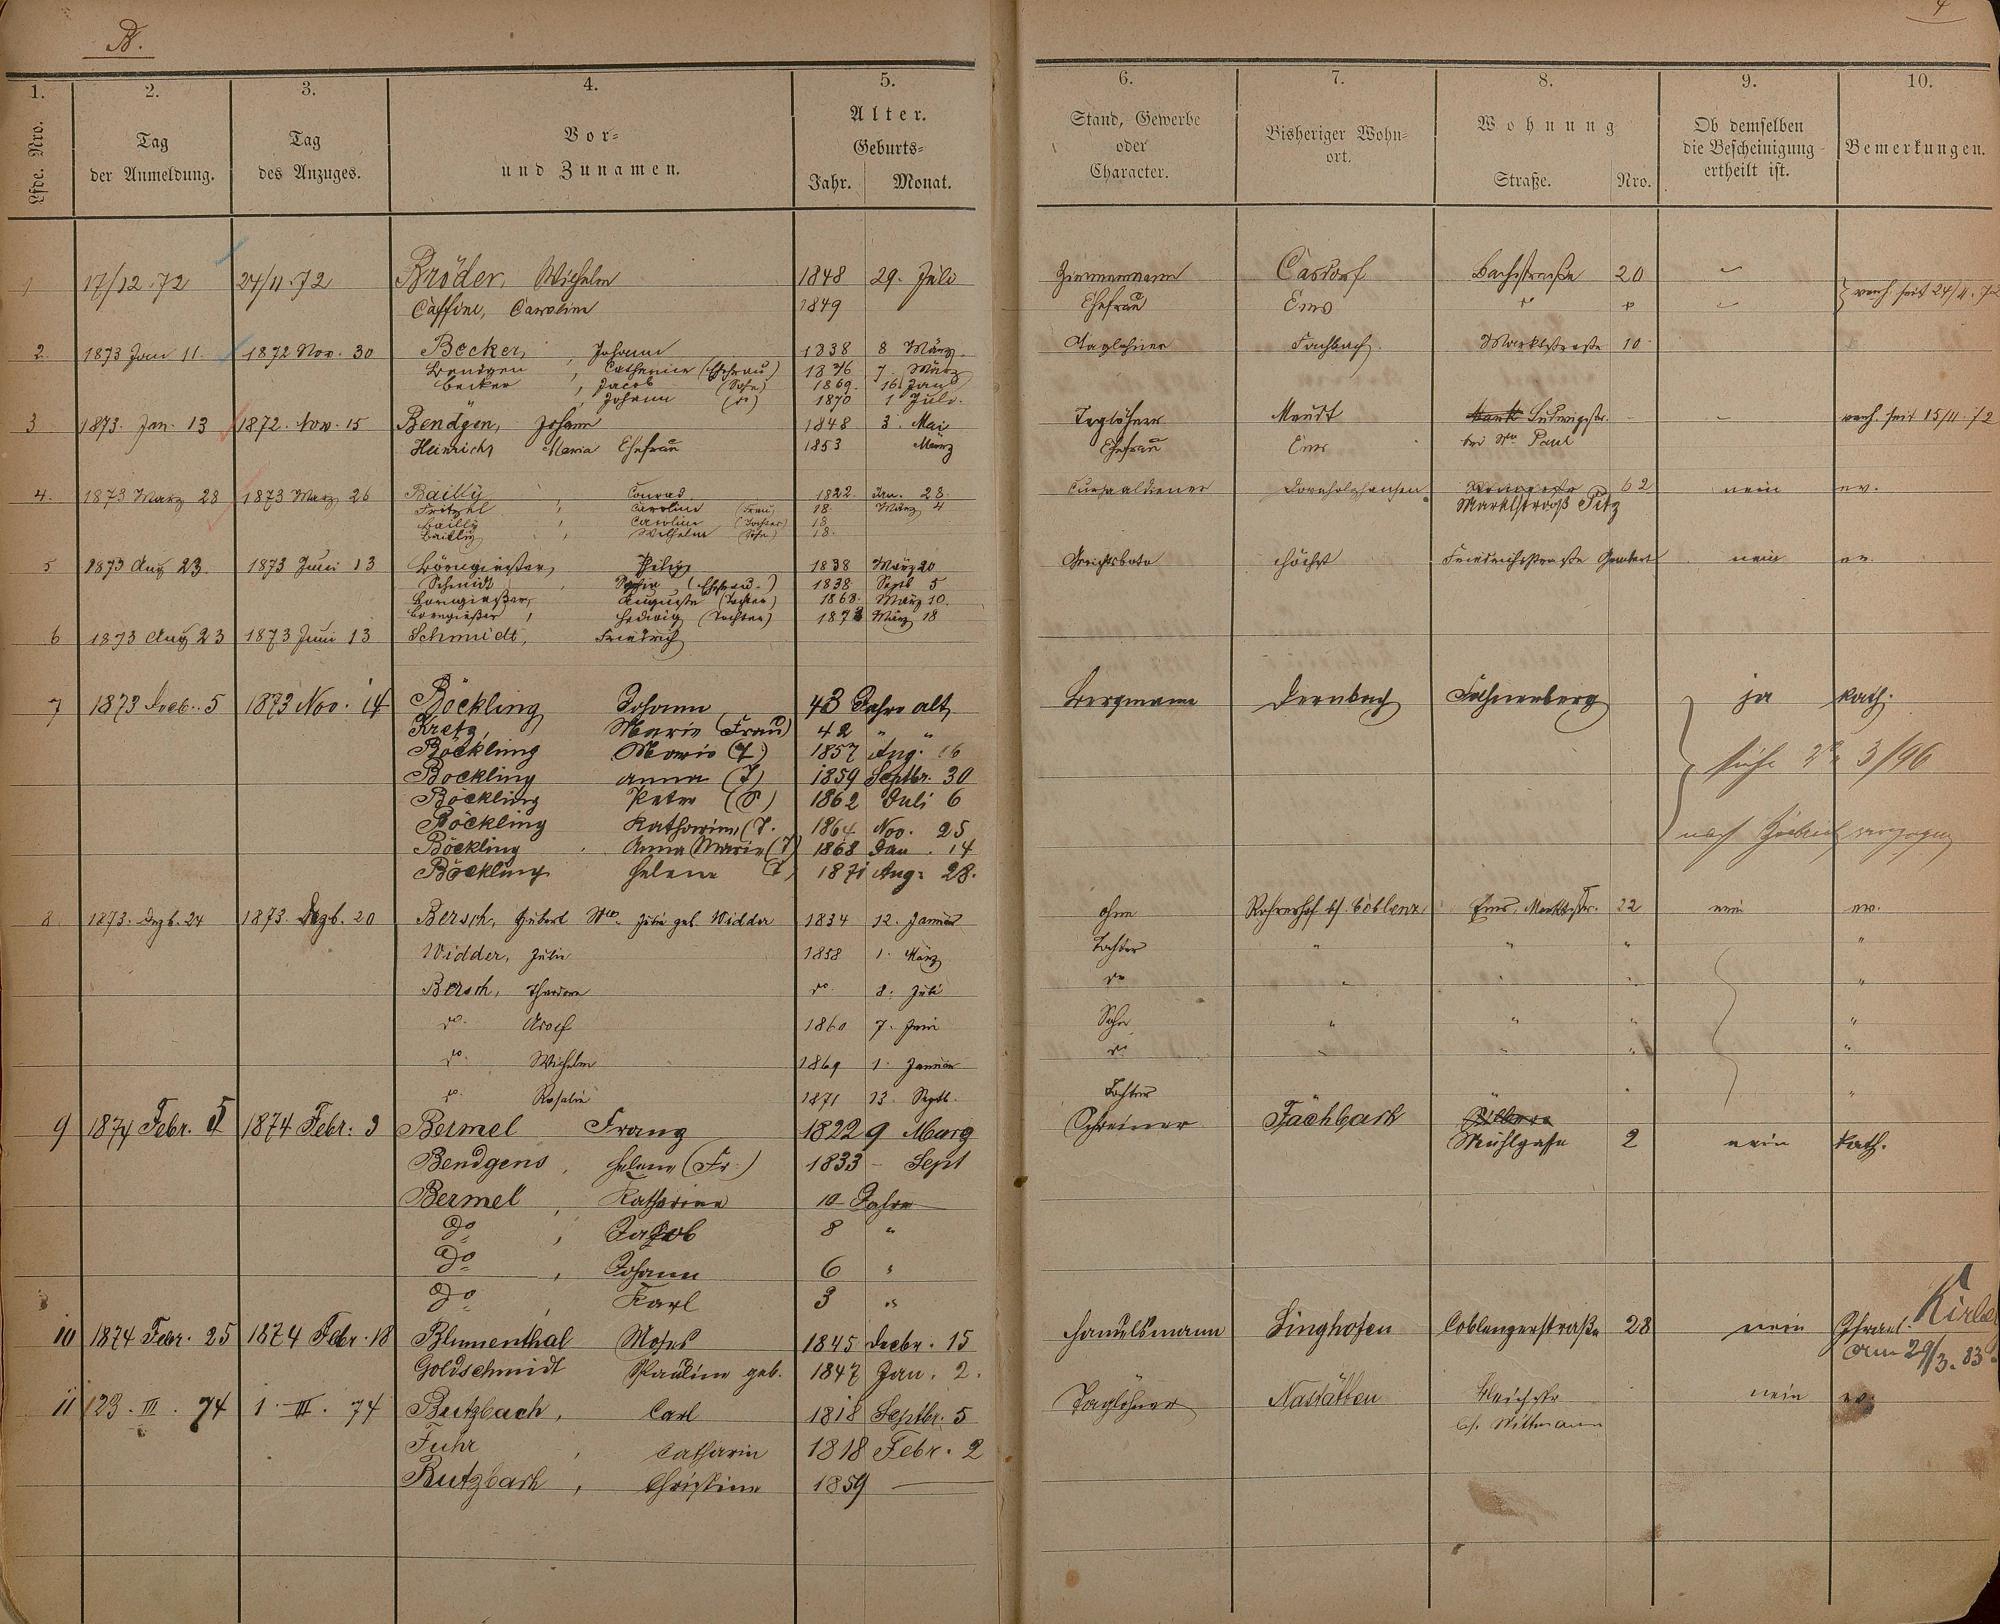 B.
4
1. 2. 3. 4. 5. 6. 7. 8. 9. 10.
Lfde. Nro. Tag der Anmeldung. Tag des Anzuges. Vor- und Zunamen. Alter. Geburts- Jahr. Monat. Stand, Gewerbe oder Character. Bisheriger Wohn-ort. Wohnung Straße. Nro. Ob demselben die Bescheinigung ertheilt ist. Bemerkungen.
1 17/12.72 24/11.72 Bröder, Wilhelm 1848 29. Juli Zimmermann Casdorf Bachstraße 20 verh. seit 24/11.72
Caffine, Caroline 1849 Ehefrau Ems
2. 1873 Jan 11. 1872 Nov. 30 Becker, Johann 1838 8 März Taglöhner Fachbach. Marktstraße 10
Catharine (Ehefrau) 7. März
Becker, Jacob (Sohn) 1869. 16. Jan
, Johann (do) 1870 1 Juli.
3 1873. Jan. 13 1872. Nov. 15 Bendgen, Johann 1848 3. Mai Taglöhner Meudt Ludwigstr. verh. seit 15/11.72
Heinrich, Maria Ehefrau 1853 März Ehefrau Ems bei Paul
4. 1873 März 28 1873 März 26 Bailly, Conrad 1822. Jan. 23. 62 nein ev.
Fritzel, Caroline (Frau) 18 März 4 Marktstraß Pitz
Bailly, Caroline (Tochter) 18
Bailly, Wilhelm (Sohn) 18.
5 1873 Aug 23. 1873 Juni 13 Börngiesser, Philip 1838 März 20 Gerichtsbote Höchst Friedrichstraße nein ev.
Schmidt, (Ehefrau.) 1838 Septb 5
Börngießer, Auguste (Tochter) 1868. März 10.
Borngießer, Hedwig (Tochter) 1873 März 18
6 1873 Aug 23 1873 Juni 13 Schmidt, Friedrich
7 1873 Dec. 5 1873 Nov. 14 Böckling, Johann 43 Jahre alt Bergmann Dernbach Fahnenberg ja kath.
Kretz, Marie (Frau) 42 " "
Böckling Marie (T.) 1857 Aug. 16 siehe 3/96
Böckling Anna (T) 1859 Septbr. 30
Böckling Peter (S) 1862 Juli 6
Böckling Katharine (T. 1864 Nov. 25 nach verzogen
Böckling Anna Marie (T) 1868 Jan. 14
Böckling Helene (T) 1871 Aug. 28.
8. 1873. Dezb. 24 1873. Dezb. 20 Bersch, Hubert Wwe. Julie geb. Widder 1834 12. Januar ohne bei Coblenz Ems, Marktstr. 22 nein ev.
Widder, Julie 1858 1. März Tochter " " " "
Bersch, Theodora do. 8. Juli do " " " "
do. Adolf 1860 7. Juni Sohn " " " "
do. Wilhelm 1869 1. Januar do " " " "
do. Rosalie 1871 13. Septb. Tochter "
9 1874 Febr. 5 1874 Febr. 3 Bermel Franz 1822 9 März Schreiner Fachbach Mühlgasse 2 nein kath.
Bendgens, Helene (Fr.) 1833 – Sept
Bermel, Katharina 10 Jahre
do, Jakob 8 "
do, Johann 6 "
do, Karl 3 "
10 1874 Febr. 25 1874 Febr. 18 Blumenthal Moses 1845 Decbr. 15 Handelsmann Singhofen Coblenzerstraße 28 nein Israel.
Goldschmidt Pauline geb. 1847 Jan. 2. am 29/3.83.
11 123. III. 74 1. III. 74 Butzbach, Carl 1818 Septbr. 5 Taglöhner Nastätten nein ev.
Fuhr, Catharin 1818 Febr. 2 bei Wittmann
Butzbach, Christine 1859 —